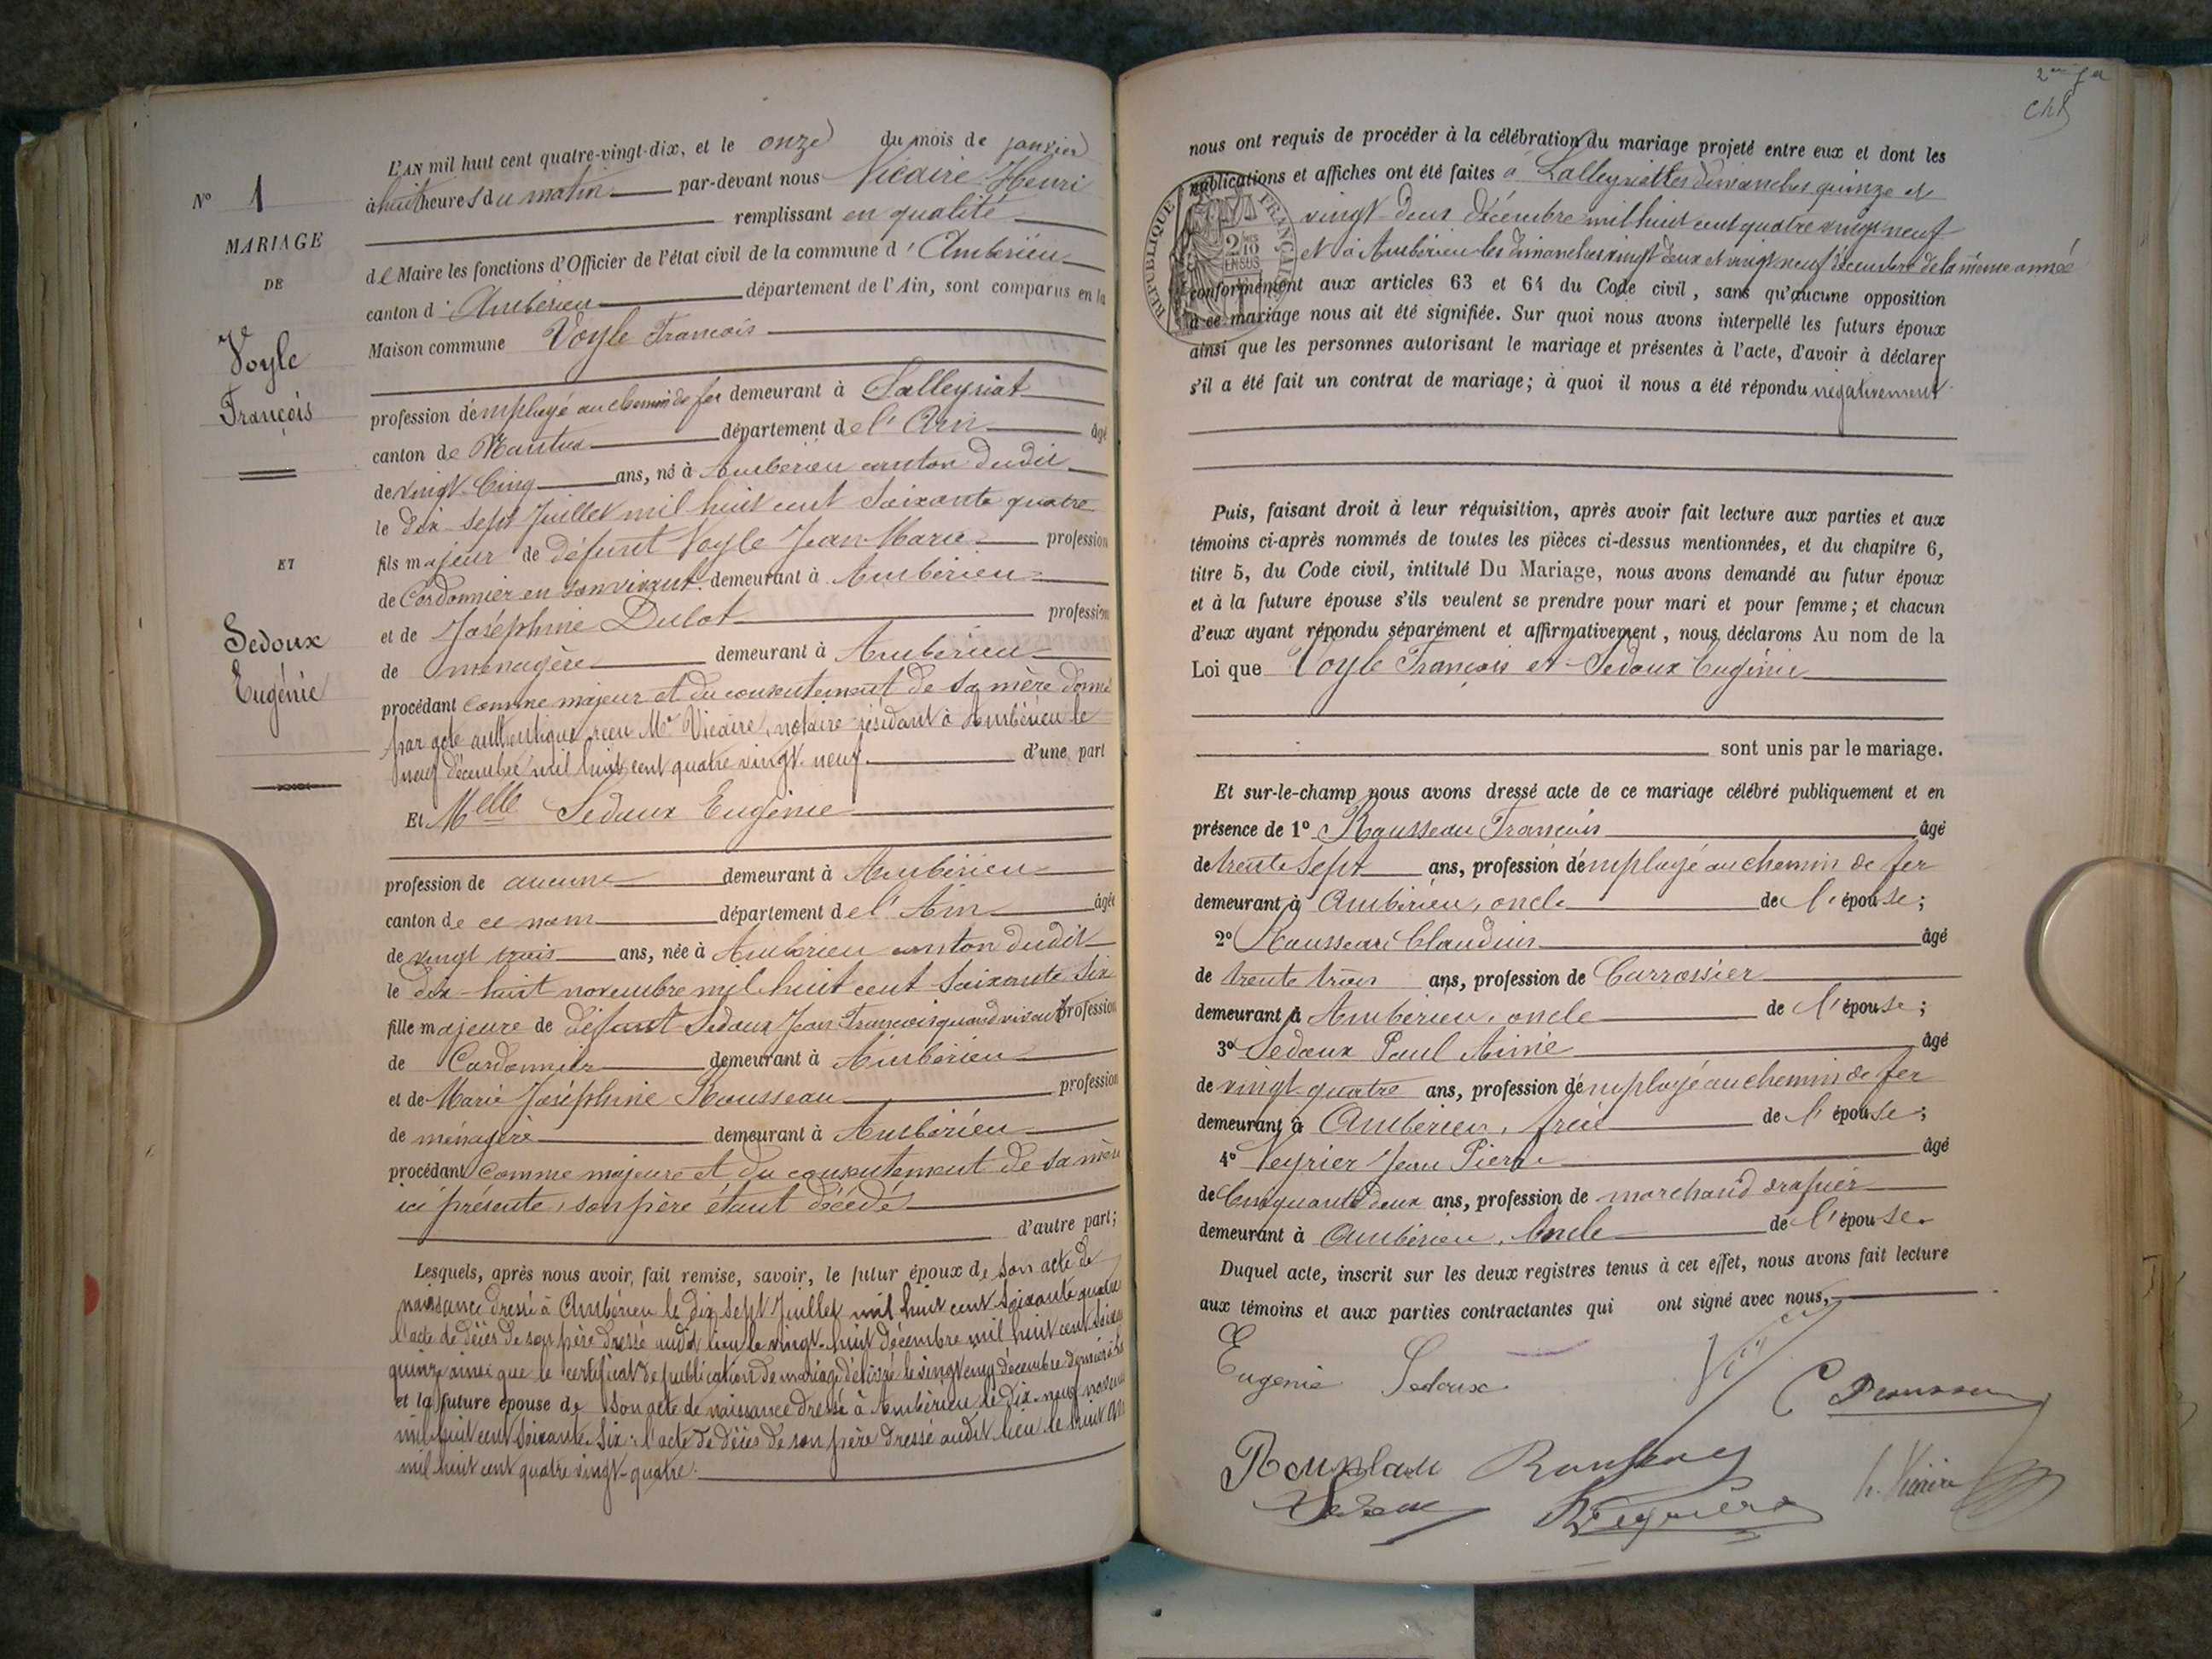 N° 1
MARIAGE
DE
Voyle
François
ET
Sedoux
Eugénie
L'AN mil huit cent quatre-vingt-dix, et le onze du mois de janvier
à huit heures du matin par-devant nous Vicaire Henri
remplissant en qualité
de Maire les fonctions d'Officier de l'état civil de la commune d'Ambérieu
canton d'Ambérieu département de l'Ain, sont comparus en la
Maison commune Voyle François
profession d'employé au chemin de fer demeurant à Lalleyriat
canton de Nantua département de l'Ain âgé
de vingt-Cinq ans, né à Ambérieu canton dudit
le dix-sept Juillet mil huit cent soixante quatre
fils majeur de défunt Voyle Jean-Marie profession
de Cordonnier en son vivant demeurant à Ambérieu
et de Joséphine Dulot profession
de ménagère demeurant à Ambérieu
procédant comme majeur et du consentement de sa mère donné
par acte authentique reçu Me Vicaire, notaire résidant à Ambérieu le
neuf décembre mil huit cent quatre vingt-neuf d'une part
Et Melle Sedoux Eugénie
profession de aucune demeurant à Ambérieu
canton de ce nom département de l'Ain âgée
de vingt trois ans, née à Ambérieu canton dudit
le dix-huit novembre mil huit cent soixante six
fille majeure de défunt Sedoux Jean-François quand vivant profession
de Cordonnier demeurant à Ambérieu
et de Marie Joséphine Rousseau profession
de ménagère demeurant à Ambérieu
procédant comme majeure et du consentement de sa mère
ici présente, son père étant décédé
d'autre part;
Lesquels, après nous avoir fait remise, savoir, le futur époux de son acte de
naissance dressé à Ambérieu le dix sept Juillet mil huit cent soixante quatre
l'acte de décès de son père dressé audit lieu le vingt-huit décembre mil huit cent soixante
quinze ainsi que le certificat de publication de mariage délivré le vingt cinq décembre dernier
et la future épouse de son acte de naissance dressé à Ambérieu le dix-neuf novembre
mil huit cent soixante six, l'acte de décès de son père dressé audit lieu le huit
mil huit cent quatre vingt-quatre.
nous ont requis de procéder à la célébration du mariage projeté entre eux et dont les
publications et affiches ont été faites à Lalleyriat les dimanches quinze et
vingt-deux décembre mil huit cent quatre vingt neuf
et à Ambérieu les dimanches vingt deux et vingt neuf décembre de la même année
conformément aux articles 63 et 64 du Code civil, sans qu'aucune opposition
à ce mariage nous ait été signifiée. Sur quoi nous avons interpellé les futurs époux
ainsi que les personnes autorisant le mariage et présentes à l'acte, d'avoir à déclarer
s'il a été fait un contrat de mariage; à quoi il nous a été répondu négativement
RÉPUBLIQUE FRANÇAISE
Puis, faisant droit à leur réquisition, après avoir fait lecture aux parties et aux
témoins ci-après nommés de toutes les pièces ci-dessus mentionnées, et du chapitre 6,
titre 5, du Code civil, intitulé Du Mariage, nous avons demandé au futur époux
et à la future épouse s'ils veulent se prendre pour mari et pour femme; et chacun
d'eux ayant répondu séparément et affirmativement, nous déclarons Au nom de la
Loi que Voyle François et Sedoux Eugénie
sont unis par le mariage.
Et sur-le-champ nous avons dressé acte de ce mariage célébré publiquement et en
présence de 1° Rousseau François âgé
de trente sept ans, profession d'employé au chemin de fer
demeurant à Ambérieu, oncle de l'épouse;
2° Rousseau Claudius âgé
de trente trois ans, profession de Carrossier
demeurant à Ambérieu, oncle de l'épouse;
3° Sedoux Paul Aimé âgé
de vingt-quatre ans, profession d'employé au chemin de fer
demeurant à Ambérieu, frère de l'épouse;
4° Veyrier Jean Pierre âgé
de Cinquante deux ans, profession de marchand drapier
demeurant à Ambérieu, Oncle de l'épouse.
Duquel acte, inscrit sur les deux registres tenus à cet effet, nous avons fait lecture
aux témoins et aux parties contractantes qui ont signé avec nous,
Eugénie Sedoux
C Rousseau
Rousseau
Sedoux
h. Vicaire